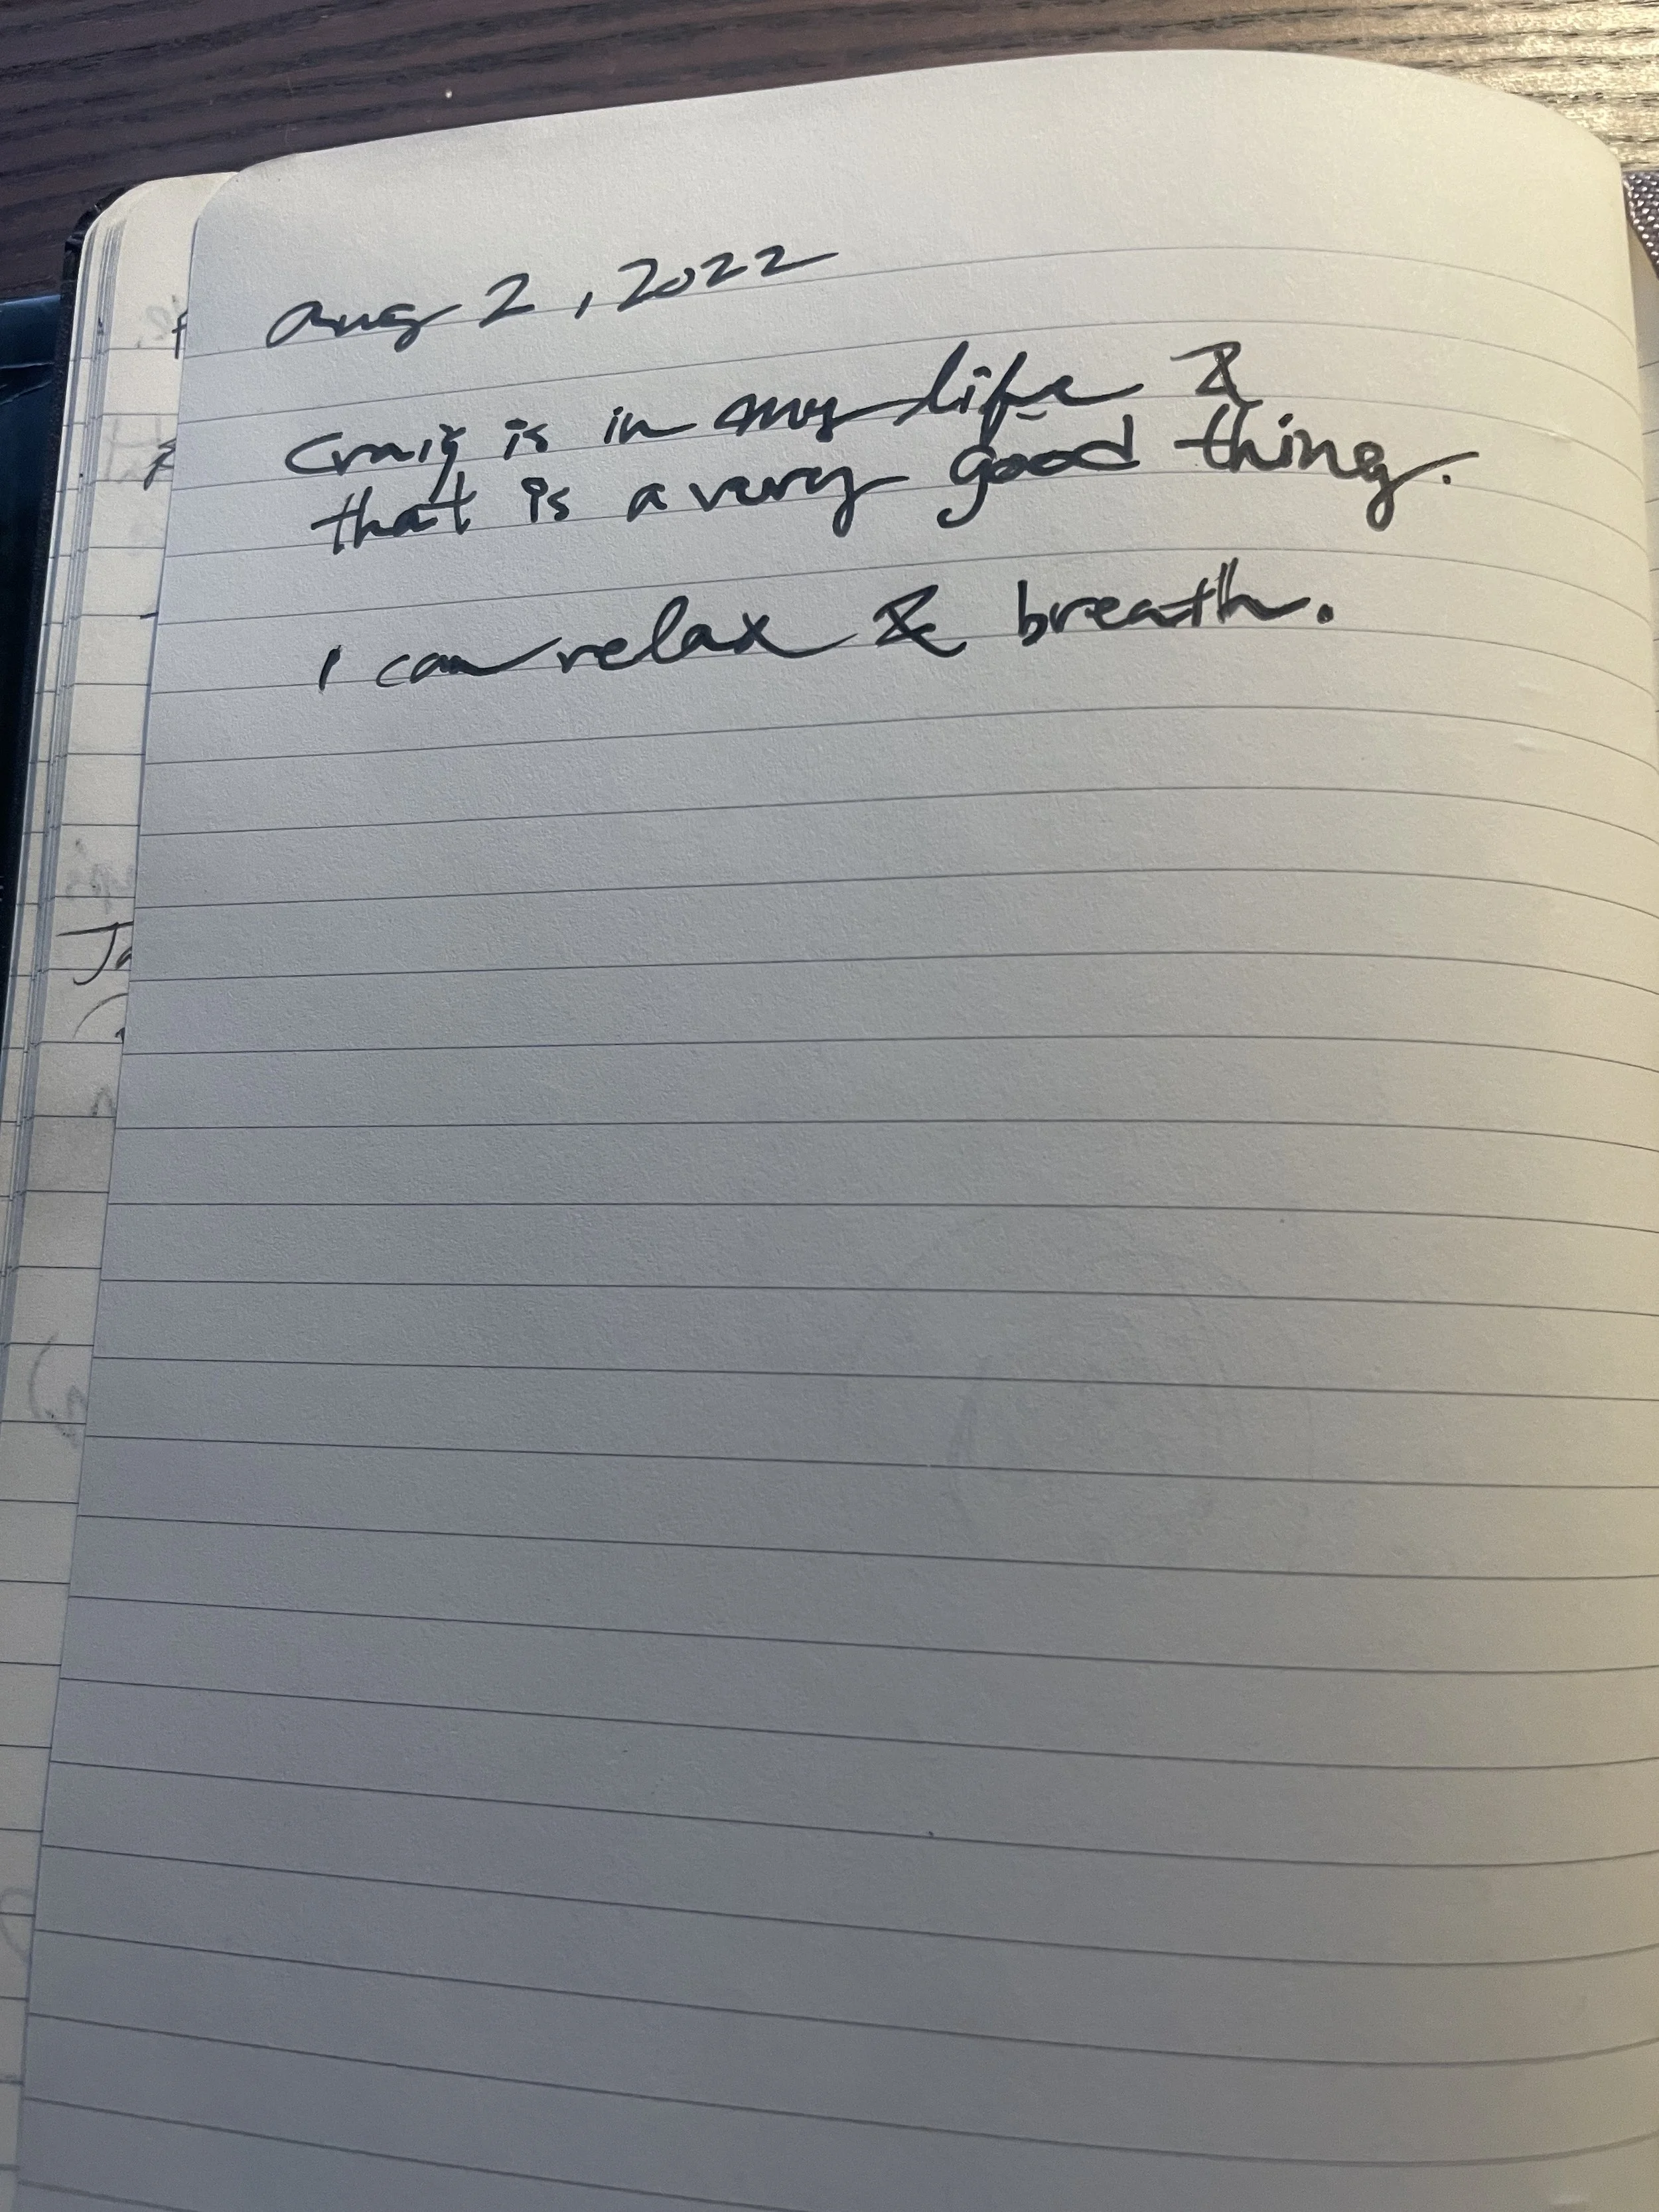 Aug 2, 2022
Craig is in my life &
that is a very good thing.
I can relax & breath.